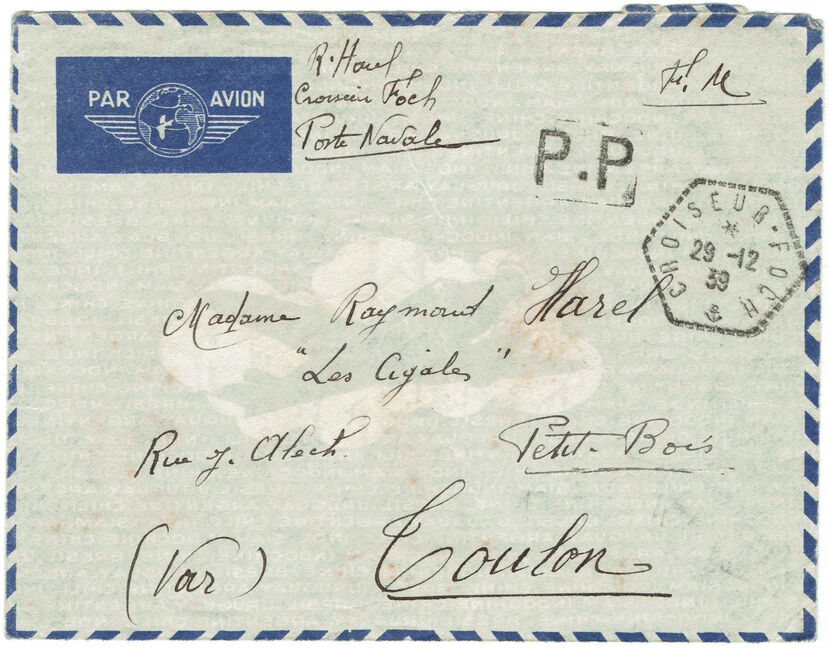 PAR AVION
R. Harel
Croiseur Foch
Poste Navale
F. M
P.P
CROISEUR-FOCH
29-12
39
Madame Raymond Harel
"Les Cigales"
Rue J. Alech.
Petit-Bois
(Var) Toulon